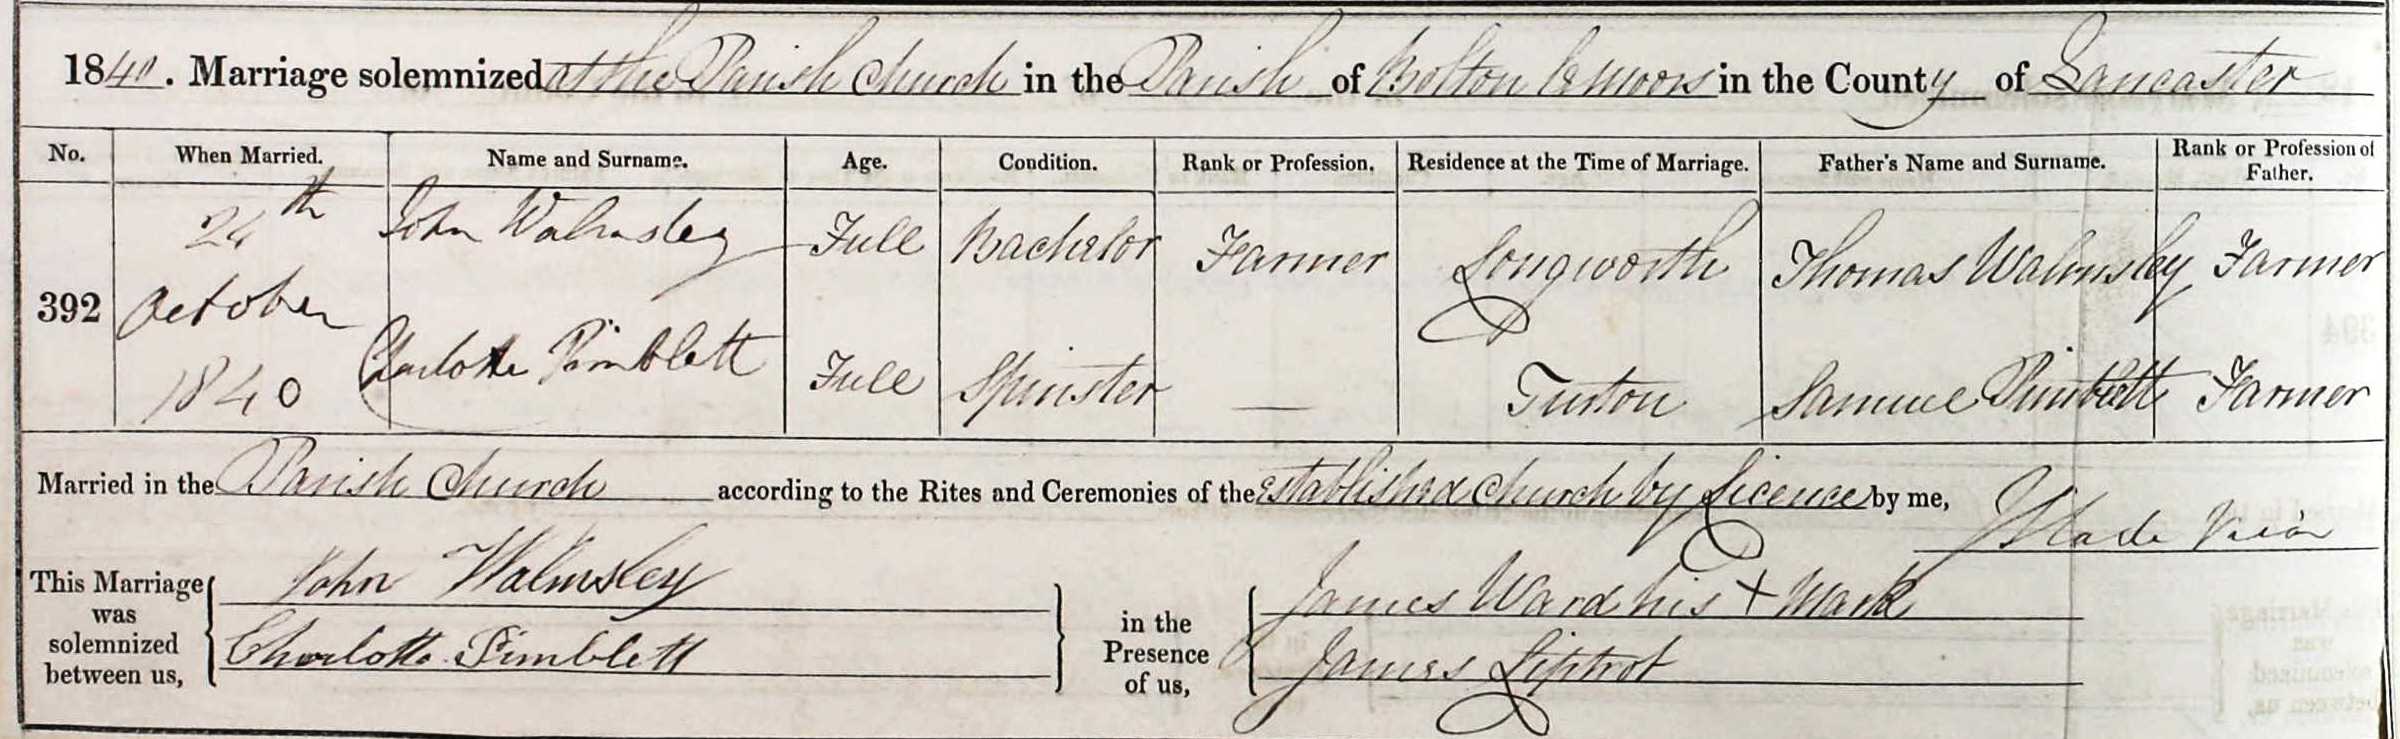 1840. Marriage solemnized at the Parish Church in the Parish of Bolton le Moors in the County of Lancaster
No. When Married. Name and Surname. Age. Condition. Rank or Profession. Residence at the Time of Marriage. Father's Name and Surname. Rank or Profession of Father.
392 24th October 1840 John Walmsley Full Bachelor Farmer Longworth Thomas Walmsley Farmer
Charlotte Pimblett Full Spinster — Turton Samuel Pimblett Farmer
Married in the Parish Church according to the Rites and Ceremonies of the Established Church by Licence by me, Slade Vicar
This Marriage was solemnized between us, John Walmsley Charlotte Pimblett in the Presence of us, James Ward his + Mark James Liptrot